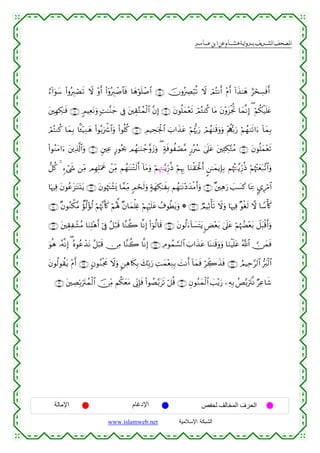 المصحف الشريف برواية هشام عن ابن عامر
أَفَسِحْرٌ هَٰذَآ أَمْ أَنتُمْ لَا تُبْصِرُونَ ٱصْلَوْهَا فَٱصْبِرُوٓا۟ أَوْ لَا تَصْبِرُوا۟ سَوَآءٌ
عَلَيْكُمْ إِنَّمَا تُجْزَوْنَ مَا كُنتُمْ تَعْمَلُونَ إِنَّ ٱلْمُتَّقِينَ فِى جَنَّٰتٍ وَنَعِيمٍ فَٰكِهِينَ
بِمَآ ءَاتَىٰهُمْ رَبُّهُمْ وَوَقَىٰهُمْ رَبُّهُمْ عَذَابَ ٱلْجَحِيمِ كُلُوا۟ وَٱشْرَبُوا۟ هَنِيٓـًٔا بِمَا كُنتُمْ
تَعْمَلُونَ مُتَّكِـِٔينَ عَلَىٰ سُرُرٍ مَّصْفُوفَةٍ وَزَوَّجْنَٰهُم بِحُورٍ عِينٍ وَٱلَّذِينَ ءَامَنُوا۟
وَٱتَّبَعَتْهُمْ ذُرِّيَّٰتُهُم بِإِيمَٰنٍ أَلْحَقْنَا بِهِمْ ذُرِّيَّٰتِهِمْ وَمَآ أَلَتْنَٰهُم مِّنْ عَمَلِهِم مِّن شَىْءٍ كُلُّ
ٱمْرِئٍ بِمَا كَسَبَ رَهِينٌ وَأَمْدَدْنَٰهُم بِفَٰكِهَةٍ وَلَحْمٍ مِّمَّا يَشْتَهُونَ يَتَنَٰزَعُونَ فِيهَا
كَأْسًا لَّا لَغْوٌ فِيهَا وَلَا تَأْثِيمٌ ۞ وَيَطُوفُ عَلَيْهِمْ غِلْمَانٌ لَّهُمْ كَأَنَّهُمْ لُؤْلُؤٌ مَّكْنُونٌ
وَأَقْبَلَ بَعْضُهُمْ عَلَىٰ بَعْضٍ يَتَسَآءَلُونَ قَالُوٓا۟ إِنَّا كُنَّا قَبْلُ فِىٓ أَهْلِنَا مُشْفِقِينَ
فَمَنَّ ٱللَّهُ عَلَيْنَا وَوَقَىٰنَا عَذَابَ ٱلسَّمُومِ إِنَّا كُنَّا مِن قَبْلُ نَدْعُوهُ إِنَّهُۥ هُوَ
ٱلْبَرُّ ٱلرَّحِيمُ فَذَكِّرْ فَمَآ أَنتَ بِنِعْمَتِ رَبِّكَ بِكَاهِنٍ وَلَا مَجْنُونٍ أَمْ يَقُولُونَ
شَاعِرٌ نَّتَرَبَّصُ بِهِۦ رَيْبَ ٱلْمَنُونِ قُلْ تَرَبَّصُوا۟ فَإِنِّى مَعَكُم مِّنَ ٱلْمُتَرَبِّصِينَ
الحرف المخالف لحفص الإدغام الإمالة
الشبكة الإسلامية www.islamweb.net